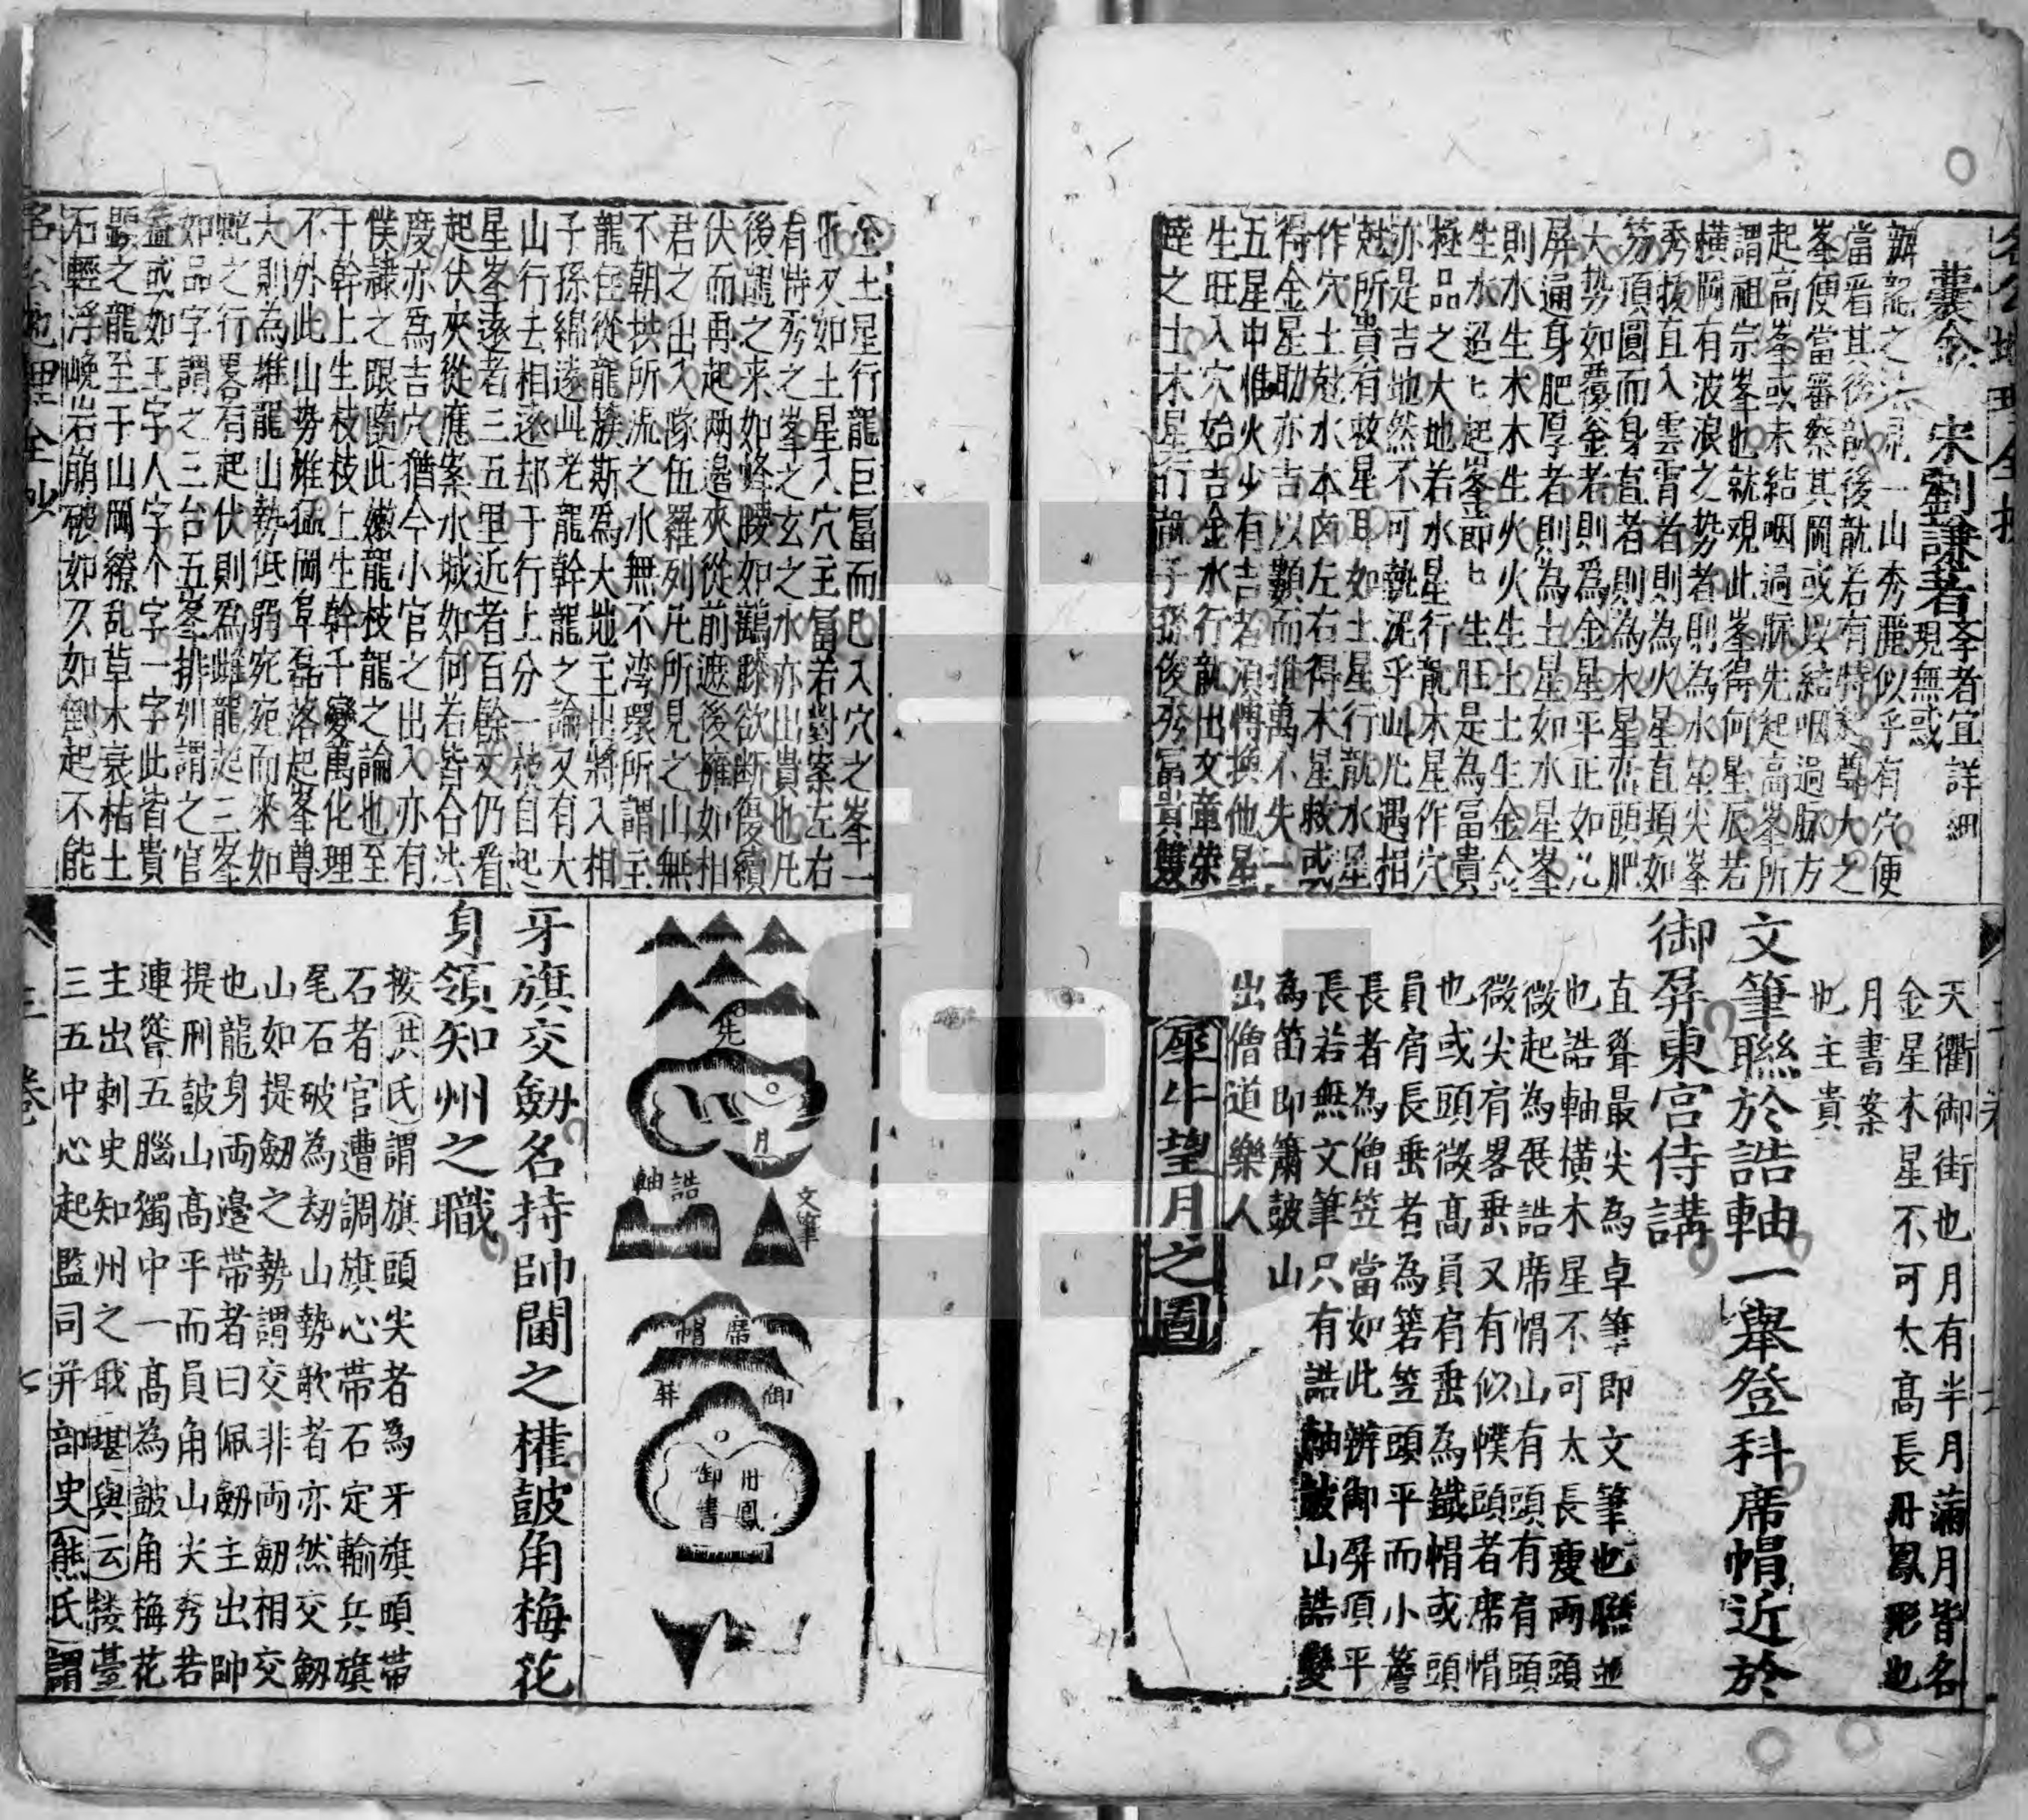 囊金　宋劉謙著孝者宜詳細現無或
辦龍之法見一山秀麗似乎有穴便
當看其後龍後龍若有特起尊大之
峯便當審察其岡或以結咽過脉方
起高峯或未結咽過脉先起高峯所
謂祖宗峯也就觀此峯得何星辰若
橫岡有波浪之势者則為水星尖峯
秀拔直入雲霄者則為火星直頭如
笏頂圓而身直者則為木星巒頭肥
大势如覆釡者則爲金星平正如几
屏遍身肥厚者則為土星如水星峯
則水生木木生火火生土土生金金
生水迢〻起峯節〻生旺是為冨貴
極品之大地若水星行龍木星作穴
亦是吉地然不可執泥乎此凡遇相
尅所貴有救星耳如土星行龍水星
作穴土尅水本凶左右得木星救或
得金星助亦吉以類而推萬不失一
五星中惟火少有吉者須愽換他星
生旺入穴始吉金水行龍出文章榮
達之士木星行龍子孫俊秀冨貴雙
天衢御街也月有半月蒲月皆名
金星木星不可太高長丹鳳形也
月書案
也主貴
文筆聯於誥軸一舉登科席帽近於
御屏東宮侍講
直聳最尖為卓筆即文筆也聯並
也誥軸橫木星不可太長瘦兩頭
微起為展誥席帽山有頭有肩頭
微尖肩畧垂又有似幞頭者席帽
也或頭微高員肩垂為鐵帽或頭
員肩長垂者為箬笠頭平而小簷
長者為僧笠當如此辨御屏頂平
長若無文筆只有誥軸皷山誥變
為笛即簫皷山
出僧道樂人
犀牛望月之圖
金土星行龍巨冨而已入穴之峯一
水又如土星入穴主冨若對案左右
有特秀之峯之玄之水亦出貴也凡
後龍之来如蜂腰如鶴膝欲断復續
伏而再起兩邉夾從前遮後擁如相
君之出入隊伍羅列凡所見之山無
不朝拱所流之水無不湾環所謂主
龍住從龍簇斯爲大地主出將入相
子孫綿遠此老龍幹龍之論又有大
山行去相逐却于行上分一枝自起
星峯遠者三五里近者百餘步仍看
起伏夾從應案水城如何若皆合法
度亦爲吉穴猶今小官之出入亦有
僕隷之跟隨此嫩龍枝龍之論也至
于幹上生枝枝上生幹千變萬化理
不外此山势雄猛岡阜磊落起峯尊
大則為雄龍山勢低弱宛宛而來如
蛇之行畧有起伏則爲雌龍起三峯
如品字謂之三台五峯排列謂之官
盖或如王字人字个字一字此皆貴
顯之龍至于山岡繚乱草木衰枯土
石輕浮巉岩崩破如欠如倒起不能
先
月
誥軸
文筆
席帽
御屏
丹鳳
御書
牙旗交劒名持帥閫之權皷角梅花
身領知州之職
按洪氏謂旗頭尖者為牙旗頭帶
石者官遭調旗心帶石定輸兵旗
尾石破為刼山勢歌者亦然交劒
山如提劒之勢謂交非兩劒相交
也龍身兩邉帶者曰佩劒主出帥
提刑皷山高平而員角山尖秀若
連聳五腦獨中一高為皷角梅花
主出刺史知州之戢堪輿云楼臺
三五中心起監司并部史熊氏謂